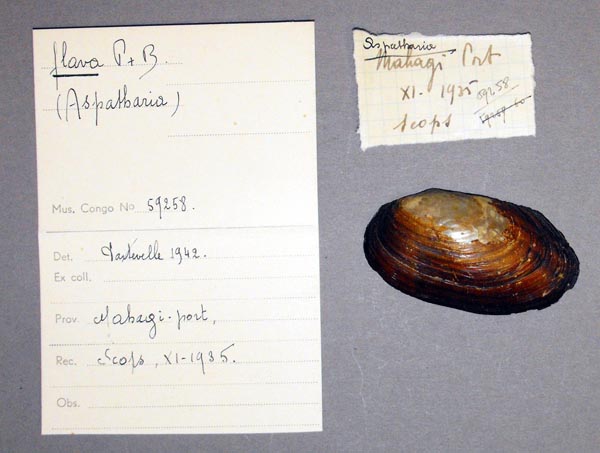 flava P + B.
(Aspatharia)
Mus. Congo No 59258.
Det. Dartevelle 1942.
Ex coll.
Prov. Mahagi-port,
Rec. Scops, XI-1935.
Obs.
Aspatharia
Mahagi Port
XI- 1935
59258
Scops